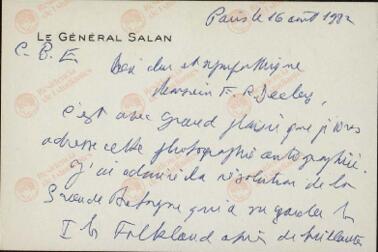 Paris le 16 août 1982
LE GÉNÉRAL SALAN
C. B. E
cher et sympathique
Monsieur F. R.
c'est avec grand plaisir que je vous
adresse cette photographie autographiée.
J'ai admiré la résolution de la
Grande Bretagne qui a su garder les
Is Falkland après de brillants